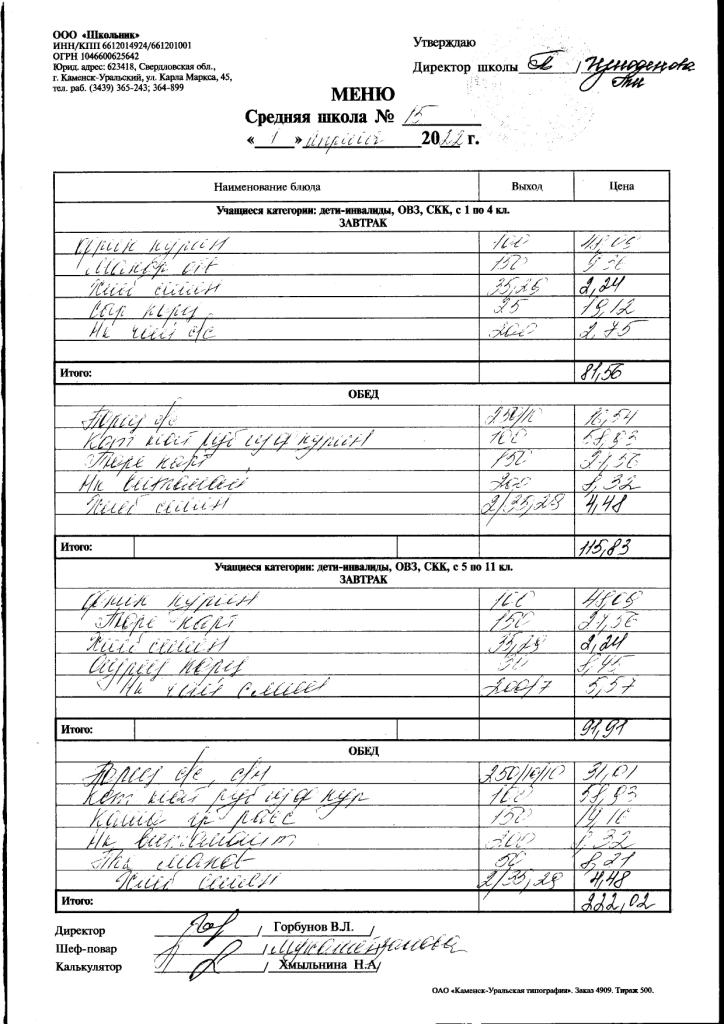 ООО «Школьник»
ИНН/КПП 6612014924/661201001
ОГРН 1046600625642
Юрид. адрес: 623418, Свердловская обл.,
г. Каменск-Уральский, ул. Карла Маркса, 45,
тел. раб. (3439) 365-243; 364-899
Утверждаю
Директор школы / 
МЕНЮ
Средняя школа № 15
« 1 » апреля 2022 г.
Наименование блюда Выход Цена
Учащиеся категории: дети-инвалиды, ОВЗ, СКК, с 1 по 4 кл.
ЗАВТРАК
курин 100 48,09
Макар отв 150
Хлеб 35,28 2,24
Сыр порц 25 19,12
Нк чай с/с 200 2,75
Итого: 81,56
ОБЕД
Борщ с/с 250/10 16,54
рубл из ф курин 100 58,93
Пюре карт 150 27,56
Нк витамин 200 8,32
Хлеб 2/35,28 4,48
Итого: 115,83
Учащиеся категории: дети-инвалиды, ОВЗ, СКК, с 5 по 11 кл.
ЗАВТРАК
курин 100 48,09
Пюре карт 150 27,56
Хлеб 35,28 2,24
Огурец порц 8,45
Нк чай с лимон 200/7 5,57
Итого: 91,91
ОБЕД
Борщ с/с, с/м 250/10/10 31,01
рубл из ф кур 100 58,93
Каша гр расс 150 19,10
Нк витамин 200 8,32
50 8,21
Хлеб 2/35,28 4,48
Итого: 222,02
Директор / Горбунов В.Л. /
Шеф-повар / 
Калькулятор / Хмыльнина Н.А/
ОАО «Каменск-Уральская типография». Заказ 4909. Тираж 500.